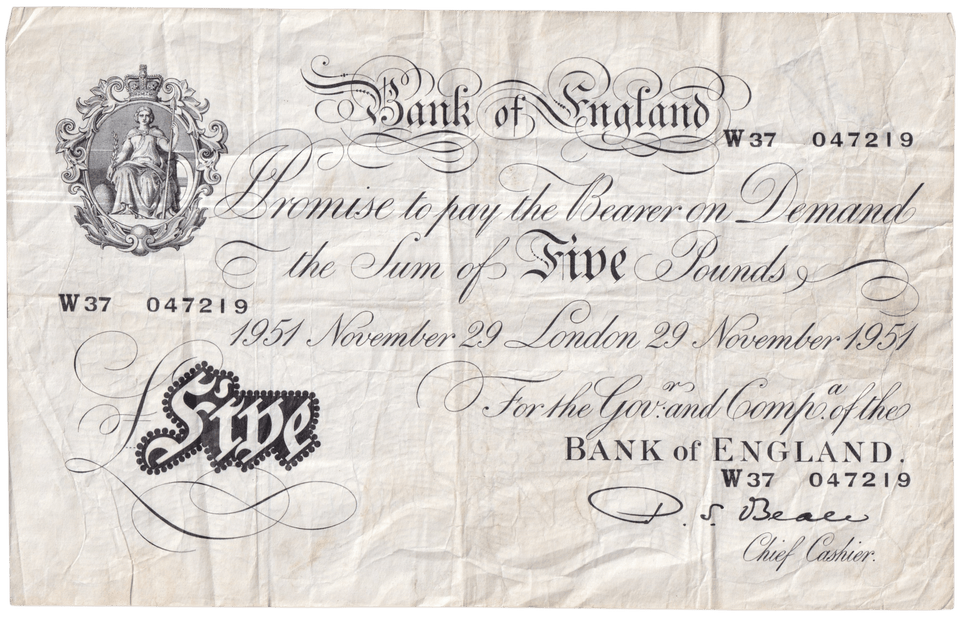 Bank of England
W37 047219
I Promise to pay the Bearer on Demand
the Sum of Five Pounds
W37 047219
1951 November 29 London 29 November 1951
For the Gov:r and Comp.a of the
BANK of ENGLAND.
£Five
W37 047219
P. S. Beale
Chief Cashier.